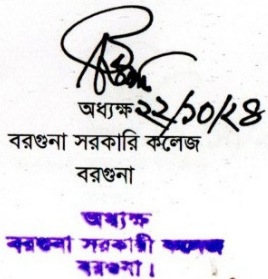 অধ্যক্ষ ২২/১০/২৪
বরগুনা সরকারি কলেজ
বরগুনা
অধ্যক্ষ
বরগুনা সরকারী কলেজ
বরগুনা।